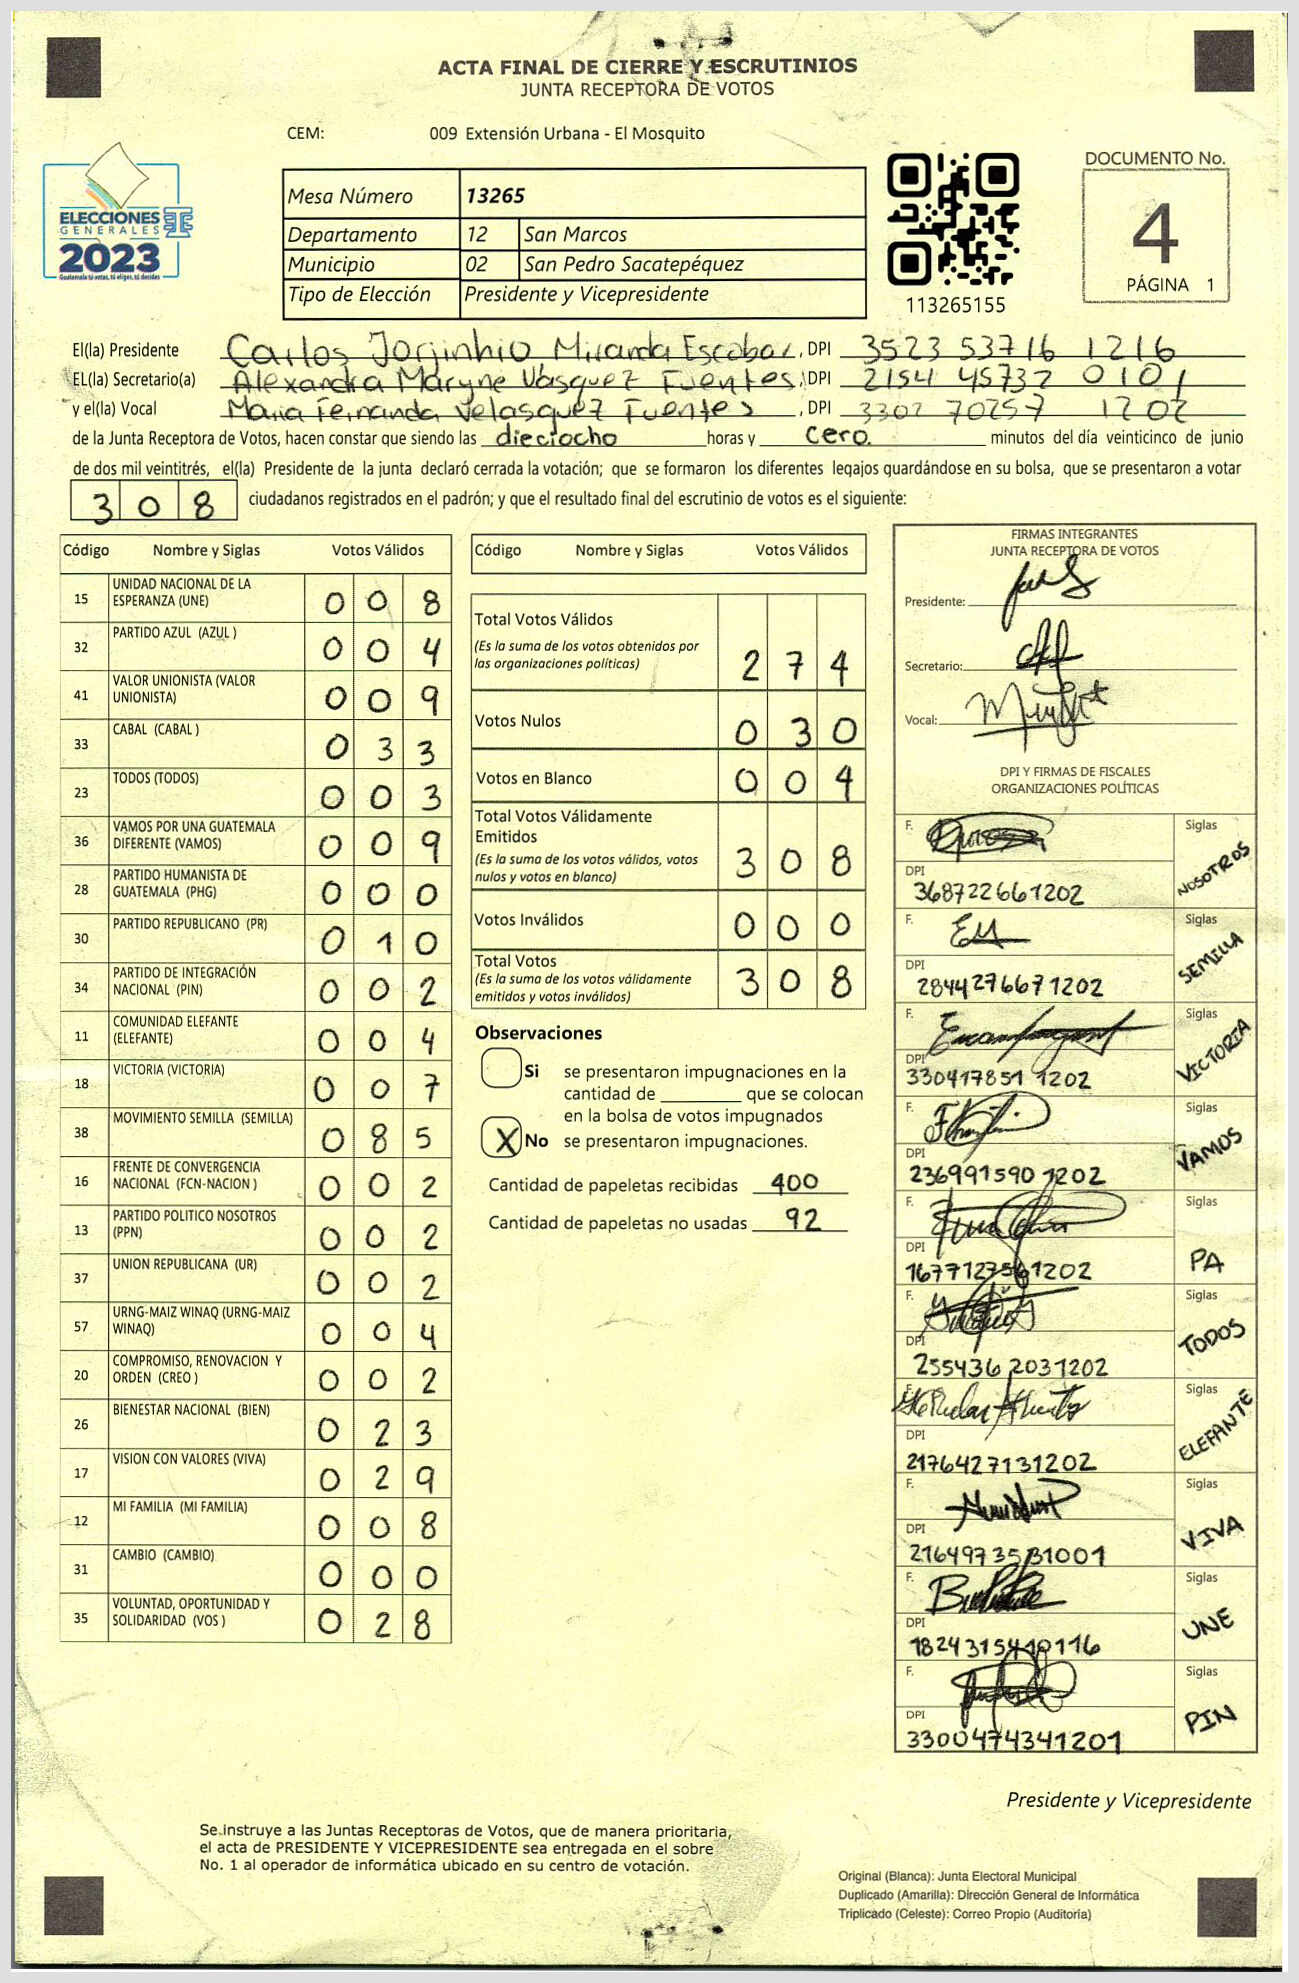 ACTA FINAL DE CIERRE Y ESCRUTINIOS
JUNTA RECEPTORA DE VOTOS
CEM: 009 Extensión Urbana - El Mosquito
ELECCIONES
GENERALES
2023
Guatemala tú votas, tú eliges, tú decides
Mesa Número 13265
Departamento 12 San Marcos
Municipio 02 San Pedro Sacatepéquez
Tipo de Elección Presidente y Vicepresidente
113265155
DOCUMENTO No.
4
PÁGINA 1
El(la) Presidente Carlos Jorjinhio Miranda Escobar, DPI 3523 53716 1216
EL(la) Secretario(a) Alexandra Maryne Vásquez Fuentes, DPI 2154 45732 0101
y el(la) Vocal Maria Fernanda Velasquez Fuentes, DPI 3302 70257 1202
de la Junta Receptora de Votos, hacen constar que siendo las dieciocho horas y cero. minutos del día veinticinco de junio
de dos mil veintitrés, el(la) Presidente de la junta declaró cerrada la votación; que se formaron los diferentes legajos guardándose en su bolsa, que se presentaron a votar
308 ciudadanos registrados en el padrón; y que el resultado final del escrutinio de votos es el siguiente:
Código Nombre y Siglas Votos Válidos
15 UNIDAD NACIONAL DE LA ESPERANZA (UNE) 008
32 PARTIDO AZUL (AZUL ) 004
41 VALOR UNIONISTA (VALOR UNIONISTA) 009
33 CABAL (CABAL ) 033
23 TODOS (TODOS) 003
36 VAMOS POR UNA GUATEMALA DIFERENTE (VAMOS) 009
28 PARTIDO HUMANISTA DE GUATEMALA (PHG) 000
30 PARTIDO REPUBLICANO (PR) 010
34 PARTIDO DE INTEGRACIÓN NACIONAL (PIN) 002
11 COMUNIDAD ELEFANTE (ELEFANTE) 004
18 VICTORIA (VICTORIA) 007
38 MOVIMIENTO SEMILLA (SEMILLA) 085
16 FRENTE DE CONVERGENCIA NACIONAL (FCN-NACION ) 002
13 PARTIDO POLITICO NOSOTROS (PPN) 002
37 UNION REPUBLICANA (UR) 002
57 URNG-MAIZ WINAQ (URNG-MAIZ WINAQ) 004
20 COMPROMISO, RENOVACION Y ORDEN (CREO ) 002
26 BIENESTAR NACIONAL (BIEN) 023
17 VISION CON VALORES (VIVA) 029
12 MI FAMILIA (MI FAMILIA) 008
31 CAMBIO (CAMBIO) 000
35 VOLUNTAD, OPORTUNIDAD Y SOLIDARIDAD (VOS ) 028
Código Nombre y Siglas Votos Válidos
Total Votos Válidos
(Es la suma de los votos obtenidos por
las organizaciones políticas) 274
Votos Nulos 030
Votos en Blanco 004
Total Votos Válidamente
Emitidos
(Es la suma de los votos válidos, votos
nulos y votos en blanco) 308
Votos Inválidos 000
Total Votos
(Es la suma de los votos válidamente
emitidos y votos inválidos) 308
Observaciones
Si se presentaron impugnaciones en la
cantidad de ________ que se colocan
en la bolsa de votos impugnados
X No se presentaron impugnaciones.
Cantidad de papeletas recibidas 400
Cantidad de papeletas no usadas 92
FIRMAS INTEGRANTES
JUNTA RECEPTORA DE VOTOS
Presidente:
Secretario:
Vocal:
DPI Y FIRMAS DE FISCALES
ORGANIZACIONES POLÍTICAS
F. Siglas NOSOTROS
DPI 368722661202
F. Siglas SEMILLA
DPI 2844276671202
F. Siglas VICTORIA
DPI 330417851 1202
F. Siglas VAMOS
DPI 236991590 1202
F. Siglas PA
DPI 1677127561202
F. Siglas TODOS
DPI 255436 2031202
F. Siglas ELEFANTE
DPI 2176427131202
F. Siglas VIVA
DPI 2164973531001
F. Siglas UNE
DPI 1824315410116
F. Siglas PIN
DPI 3300474341201
Presidente y Vicepresidente
Se instruye a las Juntas Receptoras de Votos, que de manera prioritaria,
el acta de PRESIDENTE Y VICEPRESIDENTE sea entregada en el sobre
No. 1 al operador de informática ubicado en su centro de votación.
Original (Blanca): Junta Electoral Municipal
Duplicado (Amarilla): Dirección General de Informática
Triplicado (Celeste): Correo Propio (Auditoría)